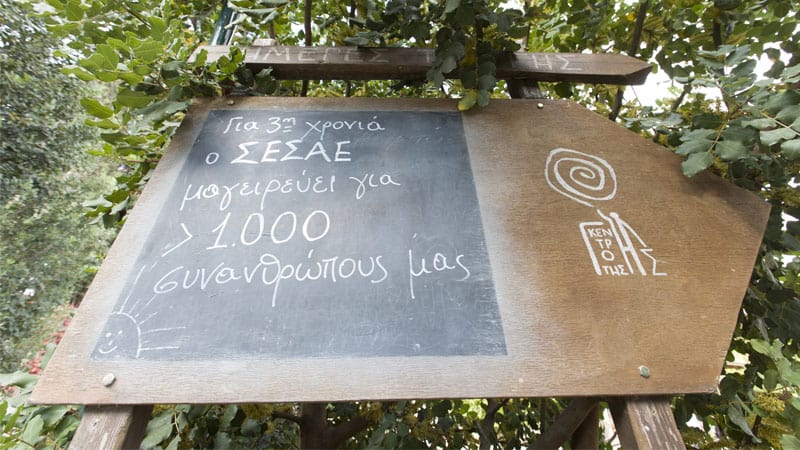 ΜΕΡΕΣ
Για 3η χρονιά
ο ΣΕΣΑΕ
μαγειρεύει για
> 1.000
συνανθρώπους μας
ΚΕΝ
ΤΡ
Ο
ΤΗΣ
ΓΗΣ